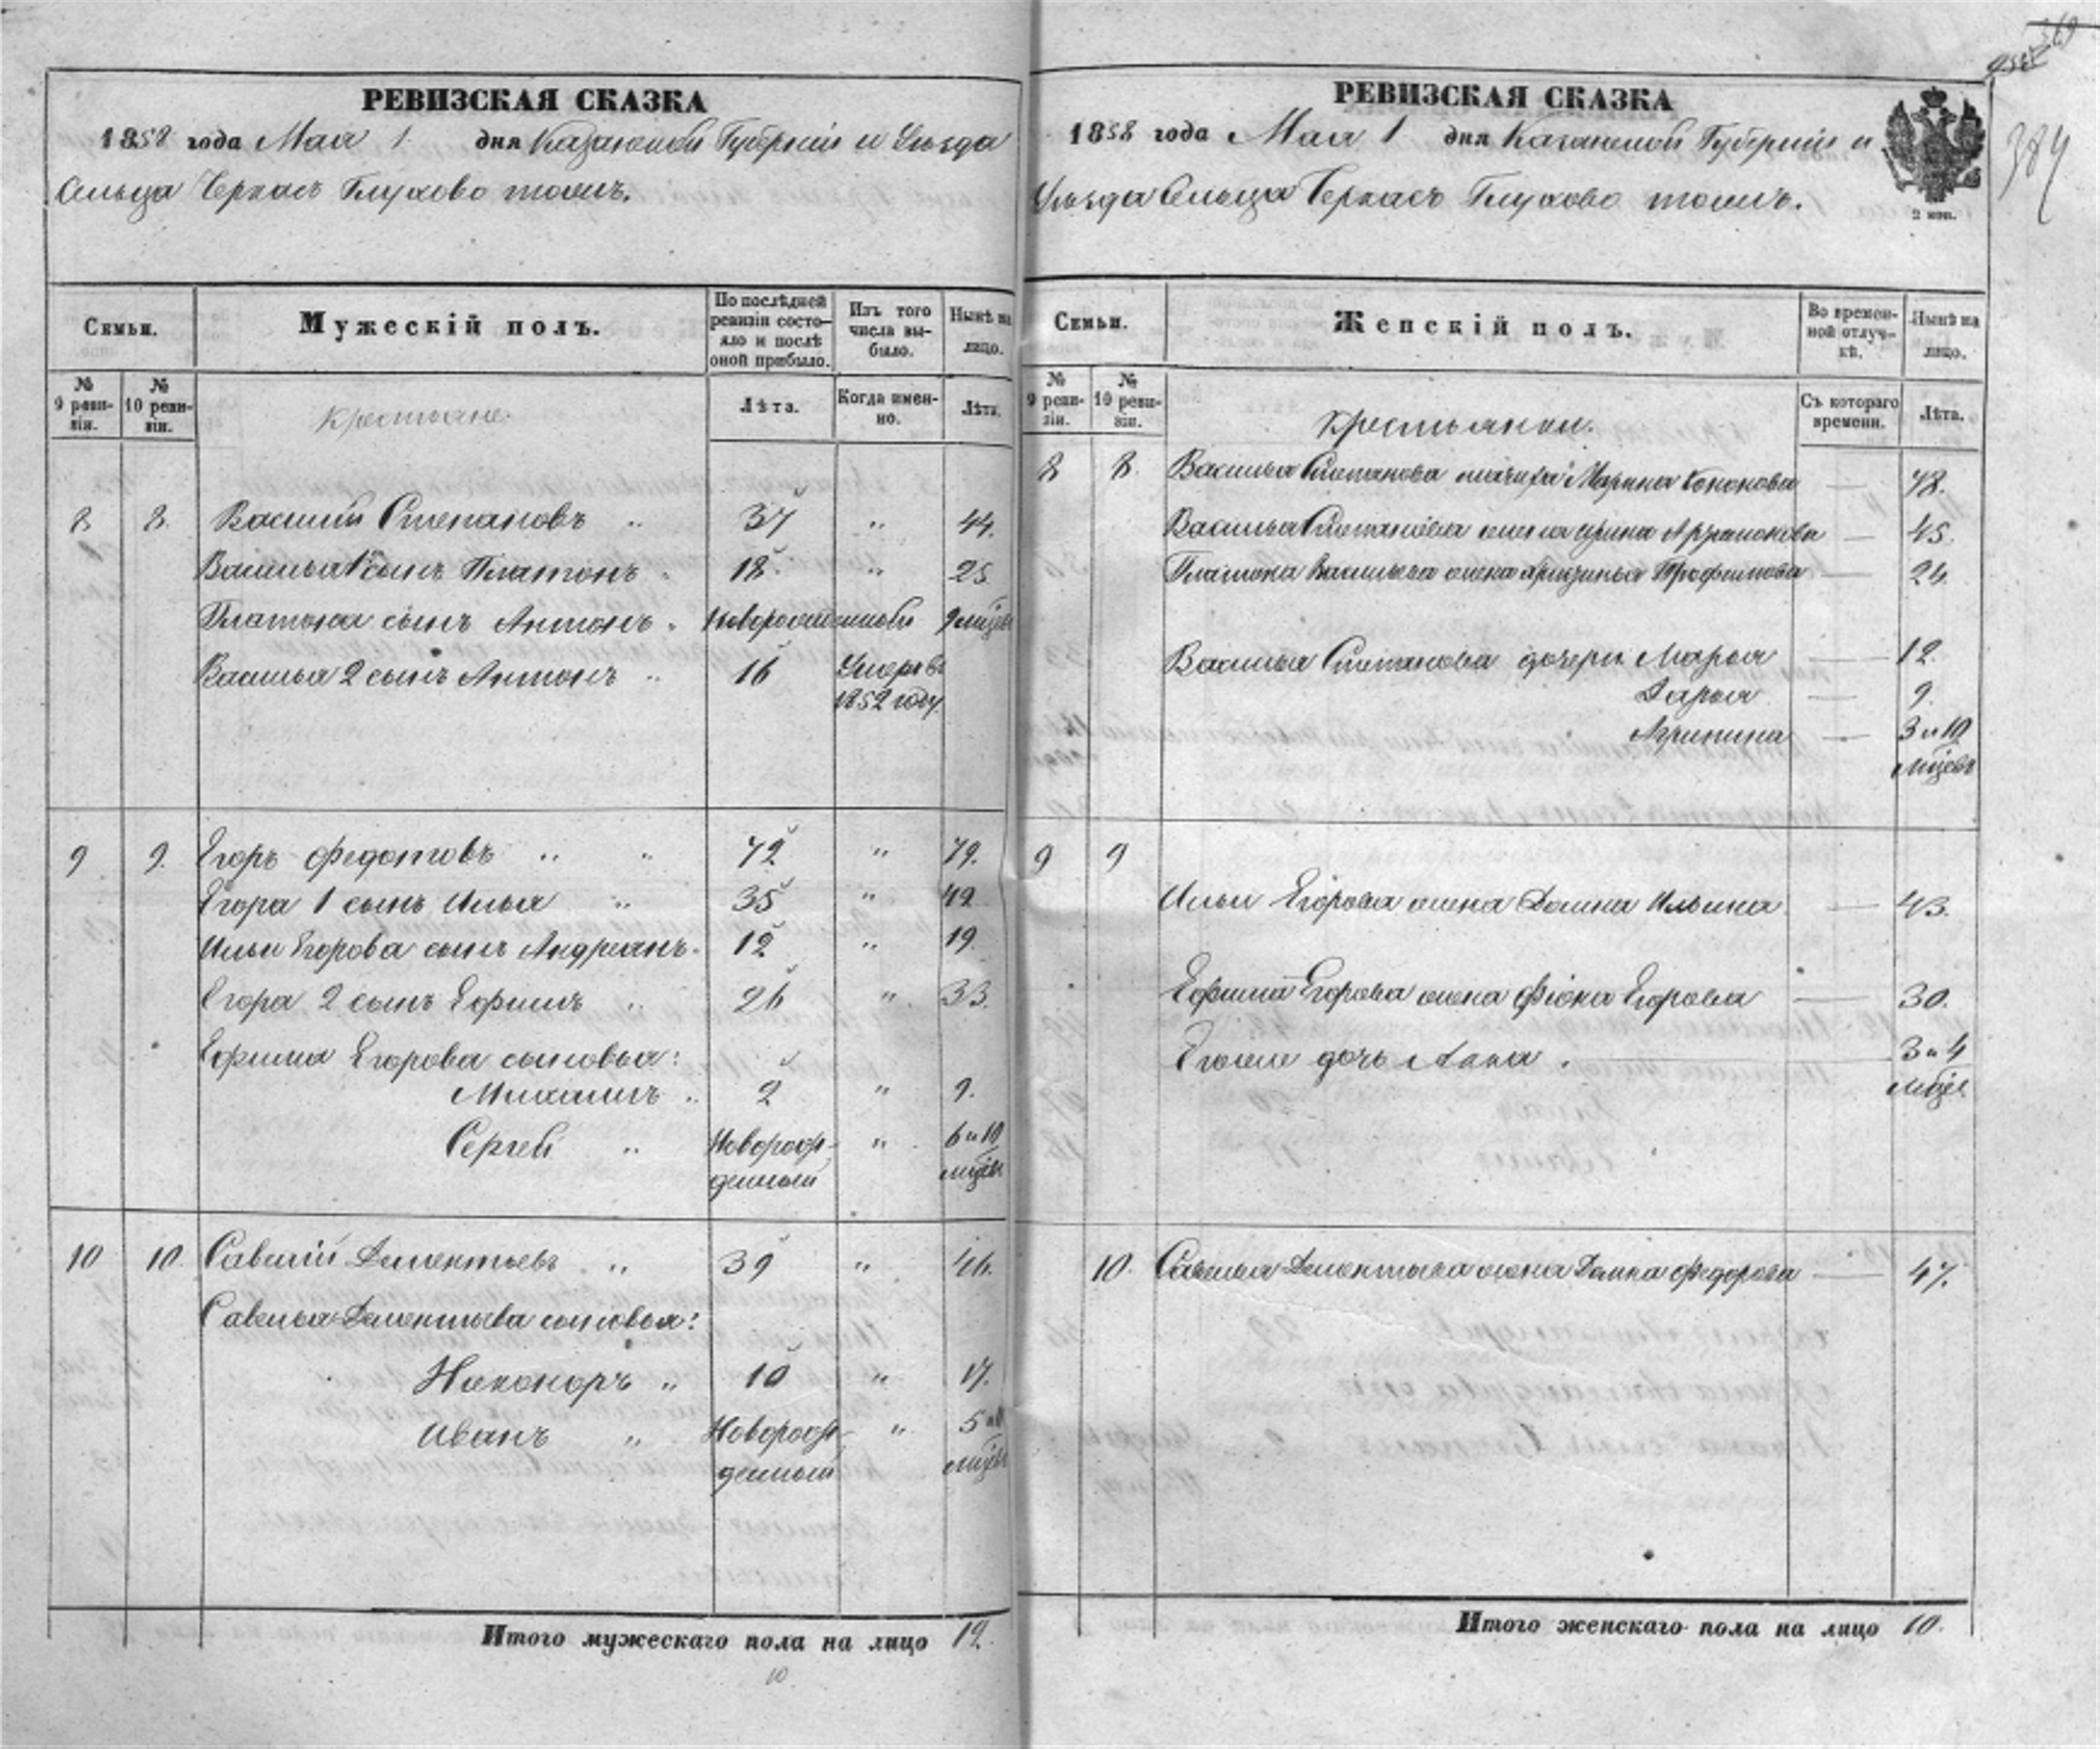 РЕВИЗСКАЯ СКАЗКА
1858 года Мая 1 дня Казанской Губерніи и Уѣзда
Сельца Черкасъ Глухово тожъ.
Семьи.
Мужескій полъ.
По послѣдней ревизіи состояло и послѣ оной прибыло.
Изъ того числа выбыло.
Нынѣ на лицо.
№ 9 ревизіи.
№ 10 ревизіи.
Крестьяне.
Лѣта.
Когда именно.
Лѣта.
8 8. Василій Степановъ 37 " 44.
Василья 1 сынъ Платонъ 18 " 25
Платона сынъ Антонъ новорожденный 9 мцевъ
Василья 2 сынъ Антонъ 16 Умеръ въ
1852 году.
9 9. Егоръ Федотовъ " " 72 " 79.
Егора 1 сынъ Илья " 35 " 42
Ильи Егорова сынъ Андреянъ 12 " 19
Егора 2 сынъ Ефимъ " 26 " 33.
Ефима Егорова сыновья:
Михаилъ 2 " 9.
Сергей " Новорож- " 6 и 10
денный мцевъ
10 10. Савелій Дементьевъ " 39 " 46.
Савелья Дементьева сыновья:
Никоноръ " 10 " 17.
Иванъ " Новорож- " 5 и
денный мцевъ
Итого мужескаго пола на лицо 12.
10
369
384
РЕВИЗСКАЯ СКАЗКА
1858 года Мая 1 дня Казанской Губерніи и
Уѣзда Сельца Черкасъ Глухово тожъ.
2 коп.
Семьи.
Женскій полъ.
Во временной отлучкѣ.
Нынѣ на лицо.
№ 9 ревизіи.
№ 10 ревизіи.
Крестьянки.
Съ котораго времени.
Лѣта.
8 8. Василья Степанова мачиха Марина Кононова — 48.
Василья Степанова жена Ирина — 45.
Платона Васильева жена Трофимова — 24.
Василья Степанова дочери Марья — 12.
Дарья — 9.
Агрипина — 3 и 10
мцевъ
9 9
Ильи Егорова жена Домна Ильина — 43.
Ефима Егорова жена Фіона Егорова — 30.
Егоже дочь Анна. — 3 и 4
мцев
10. Савелья Дементьева жена Домна Федорова — 47.
Итого женскаго пола на лицо 10.